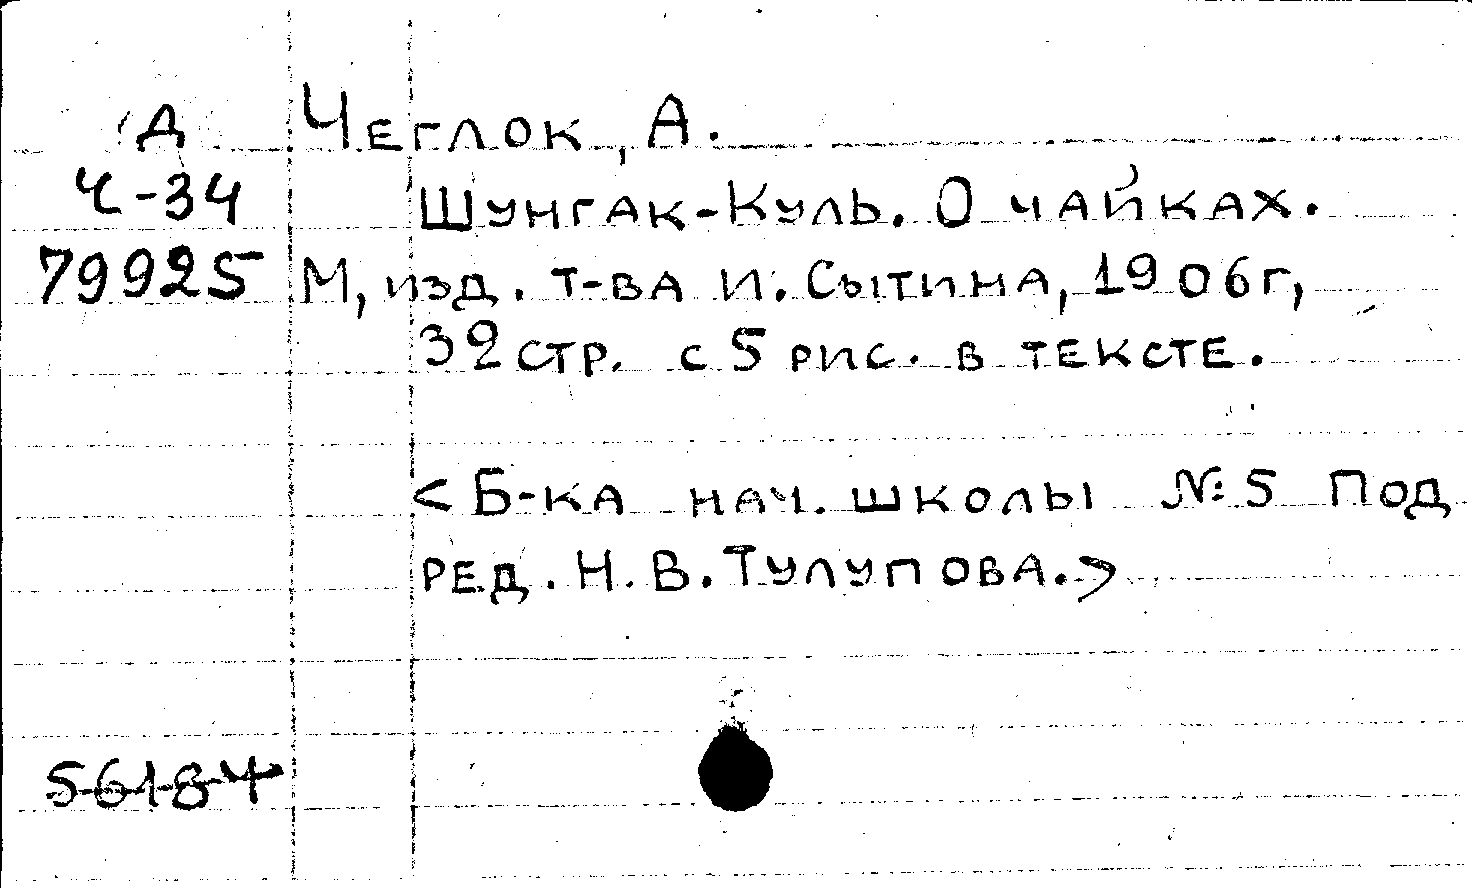 Д Чеглок, А.
Ч-34 Шунгак-Куль. О чайках.
79925 М, изд. т-ва И. Сытина, 1906г,
32 стр. с 5 рис. в тексте.
<Б-ка нач. школы №5 Под
ред. Н. В. Тулупова.>
56184